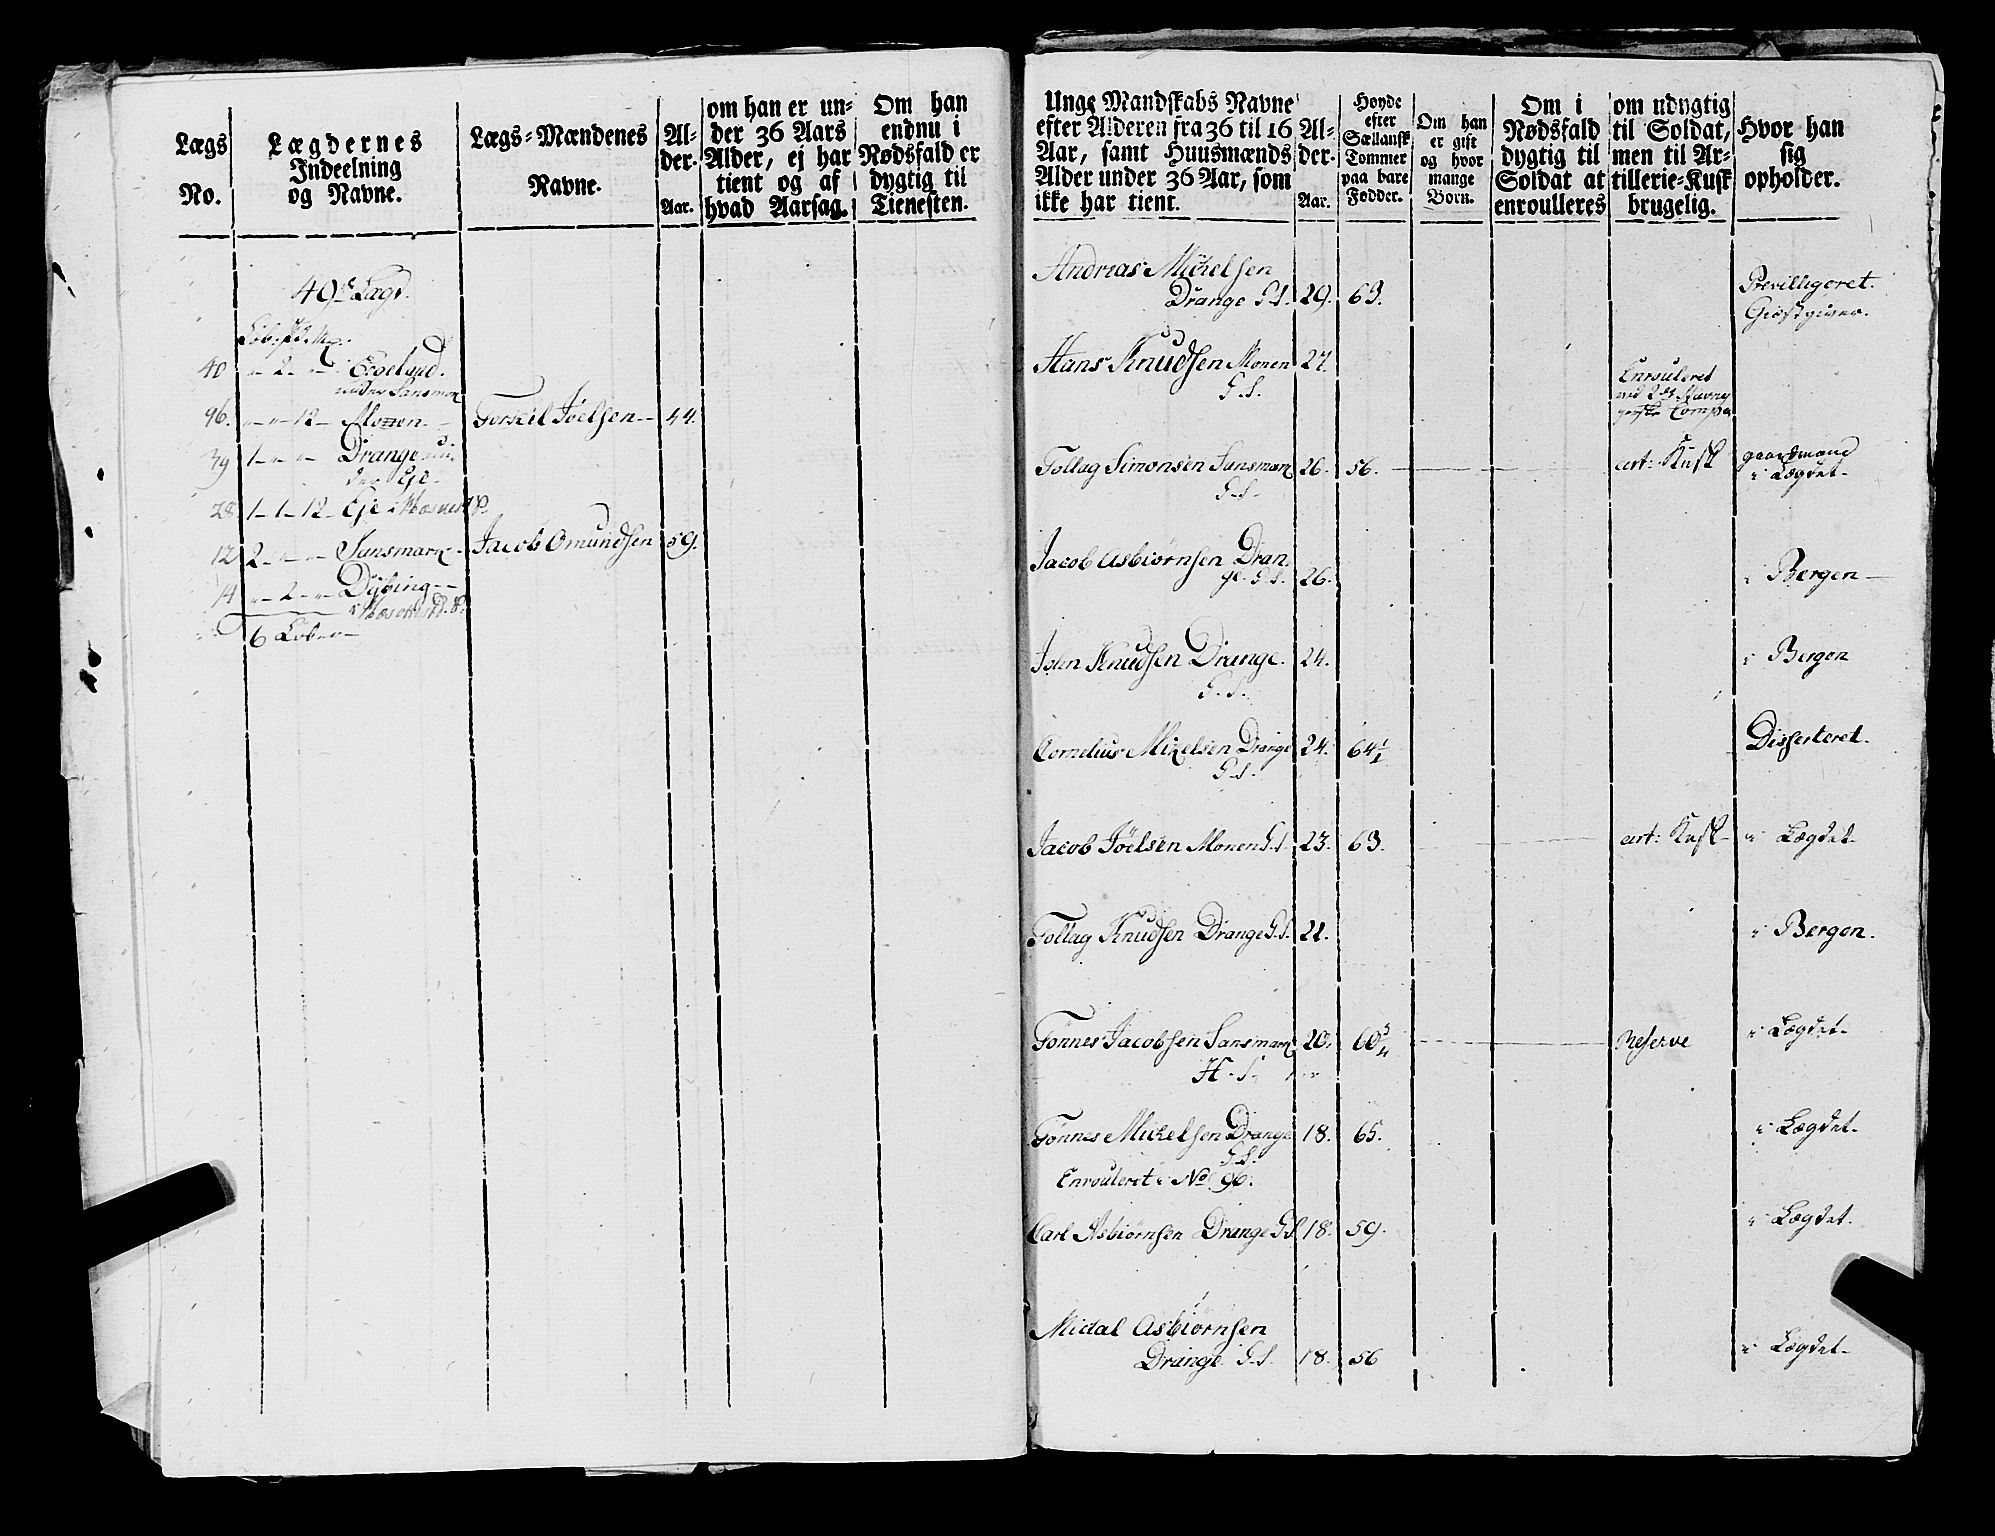 Lægs
No.
Lægdernes
Indeelning
og Navne.
Lægs=Mændenes
Navne.
Al=
der.
Aar.
om han er un=
der 36 Aars
Alder, ej har
tient og af
hvad Aarsag.
Om han
endnu i
Nødsfald er
dygtig til
Tienesten.
49de Lægd.
Løb. pd. Mr.
40 " 2 "
under Sansmark
96. " " 12 Monen Torkil Joelsen 44.
39 1 " " Drange un=
der Eje
28 1 1 12 Eje
12 2 " " Sansmark Jacob Omundsen 59.
14 " 2 " Dybing
6 Løber
Unge Mandskabs Navne
efter Alderen fra 36 til 16
Aar, samt Huusmænds
Alder under 36 Aar, som
ikke har tient.
Al=
der.
Aar.
Høyde
efter
Sællansk
Tommer
paa bare
Fødder.
Om han
er gift
og hvor
mange
Børn.
Om i
Nødsfald
dygtig til
Soldat at
enroulleres
om udygtig
til Soldat,
men til Ar=
tillerie=Kusk
brugelig.
Hvor han
sig
opholder.
Andrias Mikelsen
Drange G.S. 29. 63. Previlligeret
Giæstgiver.
Hans Knudsen Monen 27.
G.S.
Enrouleret
ved 2det Stavan
gerske Compa
Tollag Simonsen Sansmark 26. 56. art: Kusk gaardmand
G.S. i Lægdet
Jacob Asbiørnsen Dran
ge G.S. 26. i Bergen
Isten Knudsen Drange. 24. i Bergen
G.S.
Cornelius Mikelsen Drange 24. 64½ Disserteret.
G.S.
Jacob Joelsen Monen G.S. 23. 63. art: Kusk i Lægdet
Tollag Knudsen Drange G.S. 21. i Bergen.
Tönnes Jacobsen Sansmark 20. 60¾ Reserve i Lægdet
H.S.
Tönnes Mikelsen Drange 18. 65. i Lægdet
G.S.
Enrouleret i No 96.
Carl Asbiørnsen Drange G.S. 18. 59. i Lægdet.
Midal Asbiørnsen
Drange G.S. 18. 56 i Lægdet